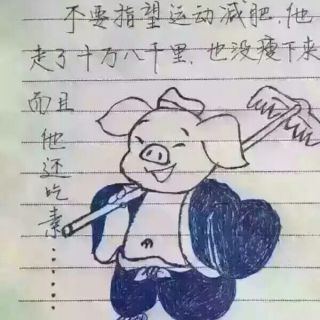 不要指望运动减肥.他
走了十万八千里.也没瘦下来
而且
他
还
吃
素......